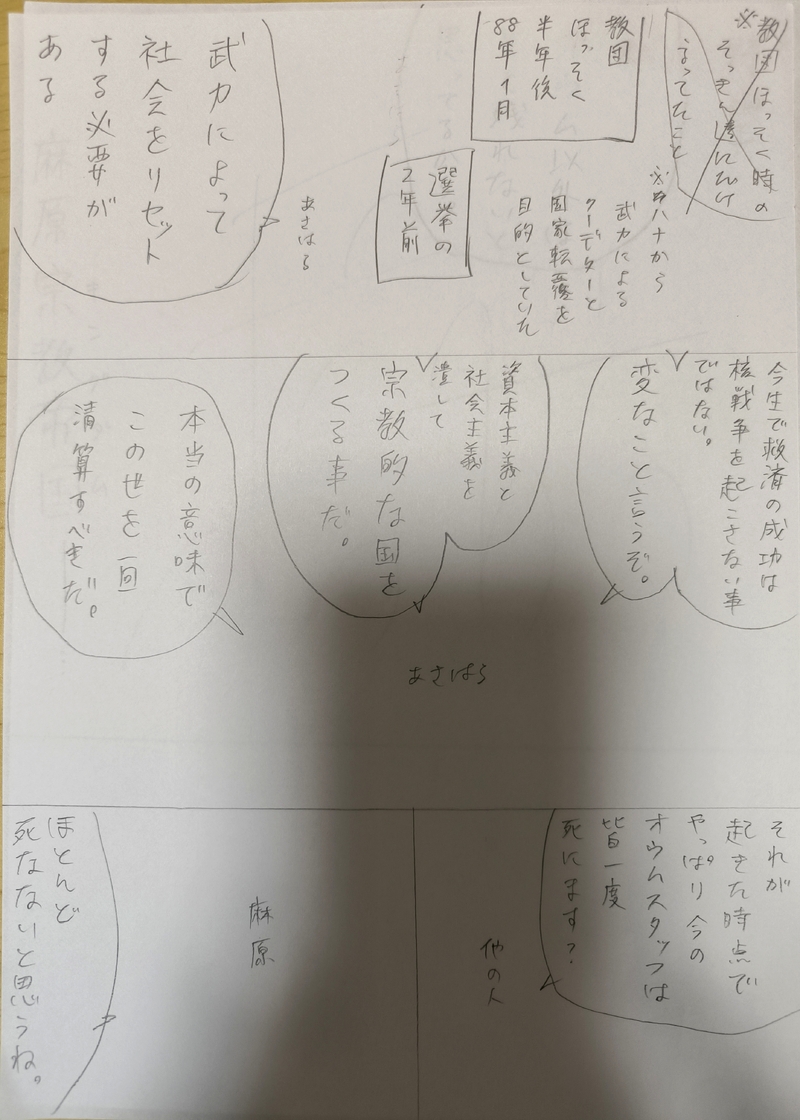 ※教団ほっそく時の
そっきん達にだけ
言ってたこと
教団
ほっそく
半年後
88年1月
※ハナから
武力による
クーデターと
国家転覆を
目的としていた
選挙の
2年前
あさはる
武力によって
社会をリセット
する必要が
ある
今生で救済の成功は
核戦争を起こさない事
ではない。
変なこと言うぞ。
資本主義と
社会主義を
潰して
宗教的な国を
つくる事だ。
本当の意味で
この世を一回
清算すべきだ。
あさはら
それが
起きた時点で
やっぱり今の
オウムスタッフは
皆一度
死にます?
他の人
麻原
ほとんど
死なないと思うね。